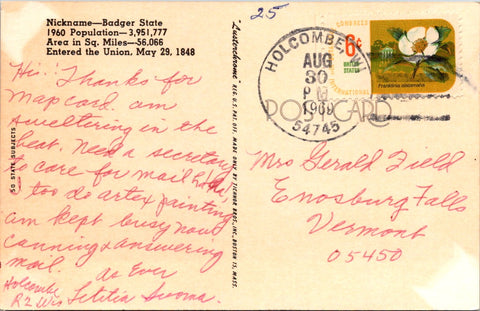 Nickname—Badger State
1960 Population—3,951,777
Area in Sq. Miles—56,066
Entered the Union, May 29, 1848
Hi: Thanks for
Map card. am
sweltering in the
heat. Need a secretary
to care for mail
too do artex painting
am kept busy now
canning & answering
mail. as Ever
Holcombe Letitia
R2 Wis
50 STATE SUBJECTS
"Lusterchrome" REG. U.S. PAT. OFF. MADE ONLY BY TICHNOR BROS., INC., BOSTON 15, MASS.
25
HOLCOMBE
AUG
30
PM
1969
54745
POSTCARD
6¢
UNITED
STATES
BOTANICAL
CONGRESS
INTERNATIONAL
Franklinia alatamaha
Mrs Gerald Field
Enosburg Falls
Vermont
05450